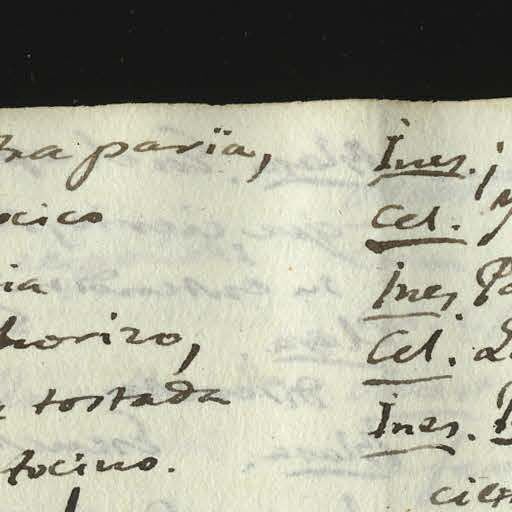 tra parïa,
ocico
ia
horizo,
tostada
tocino.
Ines. ¡
Cel.
Ines.
Cel.
Ines.
cier